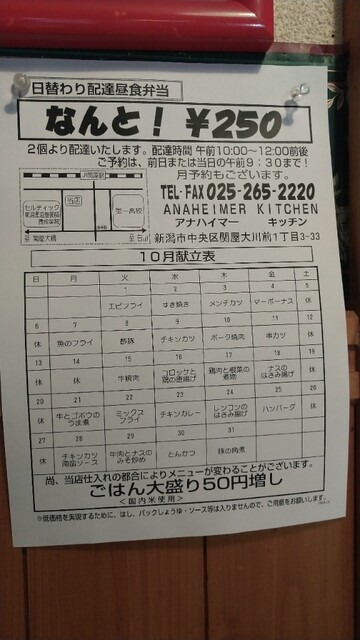 日替わり配達昼食弁当
なんと！ ￥250
2個より配達いたします。配達時間 午前10:00～12:00前後
ご予約は、前日または当日の午前9：30まで！
月予約もございます。
TEL・FAX 025-265-2220
ANAHEIMER KITCHEN
アナハイマー キッチン
新潟市中央区関屋大川前1丁目3-33
当店
第一高校
セルティック
10月献立表
日 月 火 水 木 金 土
1 2 3 4 5
エビフライ すき焼き メンチカツ マーボーナス 休
6 7 8 9 10 11 12
休 魚のフライ 酢豚 チキンカツ ポーク焼肉 串カツ 休
13 14 15 16 17 18 19
休 休 牛焼肉 コロッケと鶏の唐揚げ 鶏肉と根菜の煮物 ナスのはさみ揚げ 休
20 21 22 23 24 25 26
休 牛とゴボウのうま煮 ミックスフライ チキンカレー レンコンのはさみ揚げ ハンバーグ 休
27 28 29 30 31
休 チキンカツ南蛮ソース 牛肉とナスのみそ炒め とんかつ 豚の角煮
尚、当店仕入れの都合によりメニューが変わることがございます。
ごはん大盛り50円増し
＜国内米使用＞
※低価格を実現するために、はし、パックしょうゆ・ソース等は入りませんので、ご用意をお願いします。